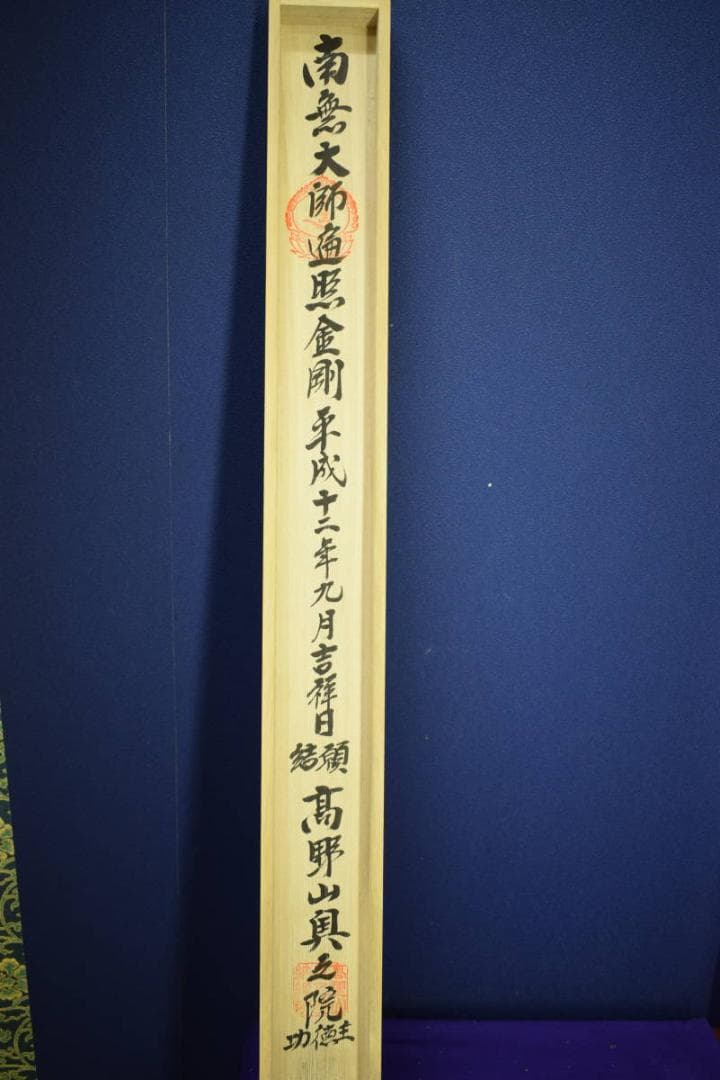 南無大師遍照金剛 平成十二年九月吉祥日 結願 髙野山奥之院 功徳主